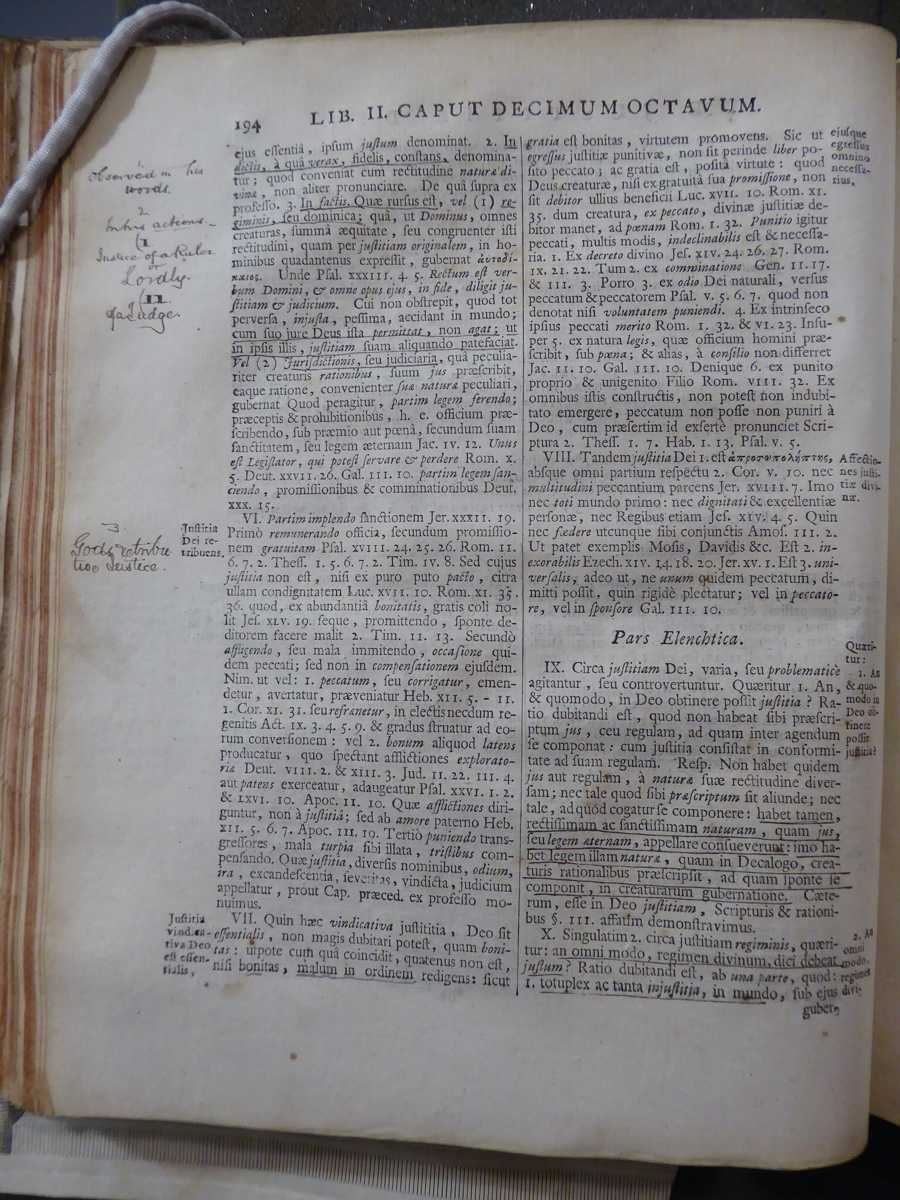 194
LIB. II. CAPUT DECIMUM OCTAVUM.
ejus essentia, ipsum justum denominat. 2. In
dictis, à quâ verax, fidelis, constans, denomina-
tur; quod conveniat cum rectitudine naturæ di-
vinæ, non aliter pronunciare. De quâ supra ex
professo. 3. In factis. Quæ rursus est, vel (1) re-
giminis, seu dominica; quâ, ut Dominus, omnes
creaturas, summâ æquitate, seu congruenter isti
rectitudini, quam per justitiam originalem, in ho-
minibus quadantenus expressit, gubernat ἀυτοδί-
καιος. Unde Psal. XXXIII. 4. 5. Rectum est ver-
bum Domini, & omne opus ejus, in fide, diligit ju-
stitiam & judicium. Cui non obstrepit, quod tot
perversa, injusta, pessima, accidant in mundo;
cum suo jure Deus ista permittat, non agat; ut
in ipsis illis, justitiam suam aliquando patefaciat.
Vel (2) Jurisdictionis, seu judiciaria, quâ peculia-
riter creaturis rationibus, suum jus præscribit,
eaque ratione, convenienter suæ naturæ peculiari,
gubernat Quod peragitur, partim legem ferendo;
præceptis & prohibitionibus, h. e. officium præ-
scribendo, sub præmio aut pœnâ, secundum suam
sanctitatem, seu legem æternam Jac. IV. 12. Unus
est Legislator, qui potest servare & perdere Rom. X.
5. Deut. XXVII. 26. Gal. III. 10. partim legem san-
ciendo, promissionibus & comminationibus Deut.
XXX. 15.
VI. Partim implendo sanctionem Jer. XXXII. 19.
Primò remunerando officia, secundum promissio-
nem gratuitam Psal. XVIII. 24. 25. 26. Rom. II.
6. 7. 2. Thess. 1. 5. 6. 7. 2. Tim. IV. 8. Sed cujus
justitia non est, nisi ex puro puto pacto, citra
ullam condignitatem Luc. XVII. 10. Rom. XI. 35.
36. quod, ex abundantiâ bonitatis, gratis coli no-
lit Jes. XLV. 19. seque, promittendo, sponte de-
ditorem facere malit 2. Tim. II. 13. Secundò
affligendo, seu mala immitendo, occasione qui-
dem peccati; sed non in compensationem ejusdem.
Nim. ut vel: 1. peccatum, seu corrigatur, emen-
detur, avertatur, præveniatur Heb. XII. 5. - 11.
1. Cor. XI. 31. seu refrænetur, in electis necdum re-
genitis Act. IX. 3. 4. 5. 9. & gradus struatur ad eo-
rum conversionem: vel 2. bonum aliquod latens
producatur, quo spectant afflictiones explorato-
riæ Deut. VIII. 2. & XIII. 3. Jud. II. 22. III. 4.
aut patens exerceatur, adaugeatur Psal. XXVI. 1. 2.
& LXVI. 10. Apoc. II. 10. Quæ afflictiones diri-
guntur, non à justitiâ; sed ab amore paterno Heb.
XII. 5. 6. 7. Apoc. III. 19. Tertiò puniendo trans-
gressores, mala turpia sibi illata, tristibus com-
pensando. Quæ justitia, diversis nominibus, odium,
ira, excandescentia, severitas, vindicta, judicium
appellatur, prout Cap. præced. ex professo mo-
nuimus.
VII. Quin hæc vindicativa justititia, Deo sit
essentialis, non magis dubitari potest, quam boni-
tas: utpote cum quâ coincidit, quatenus non est,
nisi bonitas, malum in ordinem redigens: sicut
Observed in his
words.
2
In his actions.
(1
Justice of a Ruler
or
Lordly
(II
of a Judge
3.
Gods retribu
tive Justice.
Justitia
Dei re-
tribuens.
Justitia
vindica-
tiva Deo
est essen-
tialis,
gratia est bonitas, virtutem promovens. Sic ut
egressus justitiæ punitivæ, non sit perinde liber po-
sito peccato; ac gratia est, positâ virtute: quod
Deus creaturæ, nisi ex gratuitâ sua promissione, non
sit debitor ullius beneficii Luc. XVII. 10. Rom. XI.
35. dum creatura, ex peccato, divinæ justitiæ de-
bitor manet, ad pœnam Rom. 1. 32. Punitio igitur
peccati, multis modis, indeclinabilis est & necessa-
ria. 1. Ex decreto divino Jes. XIV. 24. 26. 27. Rom.
IX. 21. 22. Tum 2. ex comminatione Gen. II. 17.
& III. 3. Porro 3. ex odio Dei naturali, versus
peccatum & peccatorem Psal. V. 5. 6. 7. quod non
denotat nisi voluntatem puniendi. 4. Ex intrinseco
ipsius peccati merito Rom. 1. 32. & VI. 23. Insu-
per 5. ex natura legis, quæ officium homini præ-
scribit, sub pœna; & alias, à consilio non differret
Jac. II. 10. Gal. III. 10. Denique 6. ex punito
proprio & unigenito Filio Rom. VIII. 32. Ex
omnibus istis constructis, non potest non indubi-
tato emergere, peccatum non posse non puniri à
Deo, cum præsertim id exsertè pronunciet Scri-
ptura 2. Thess. 1. 7. Hab. 1. 13. Psal. V. 5.
VIII. Tandem justitia Dei 1. est ἀπροσωπολήπτης,
absque omni partium respectu 2. Cor. V. 10. nec
multitudini peccantium parcens Jer. XVIII. 7. Imo
nec toti mundo primo: nec dignitati & excellentiæ
personæ, nec Regibus etiam Jes. XIV. 4. 5. Quin
nec fœdere utcunque sibi conjunctis Amos. III. 2.
Ut patet exemplis Mosis, Davidis &c. Est 2. in-
exorabilis Ezech. XIV. 14. 18. 20. Jer. XV. 1. Est 3. uni-
versalis, adeo ut, ne unum quidem peccatum, di-
mitti possit, quin rigidè plectatur; vel in peccato-
re, vel in sponsore Gal. III. 10.
Pars Elenchtica.
IX. Circa justitiam Dei, varia, seu problematicè
agitantur, seu controvertuntur. Quæritur 1. An,
& quomodo, in Deo obtinere possit justitia? Ra-
tio dubitandi est, quod non habeat sibi præscri-
ptum jus, ceu regulam, ad quam inter agendum
se componat: cum justitia consistat in conformi-
tate ad suam regulam. Resp. Non habet quidem
jus aut regulam, à naturæ suæ rectitudine diver-
sam; nec tale quod sibi præscriptum sit aliunde; nec
tale, ad quod cogatur se componere: habet tamen,
rectissimam ac sanctissimam naturam, quam jus,
seu legem æternam, appellare consueverunt: imo ha-
bet legem illam naturæ, quam in Decalogo, crea-
turis rationalibus præscripsit, ad quam sponte se
componit, in creaturarum gubernatione. Cæte-
rum, esse in Deo justitiam, Scripturis & rationi-
bus §. III. affatim demonstravimus.
X. Singulatim 2. circa justitiam regiminis, quæri-
tur: an omni modo, regimen divinum, dici debeat
justum? Ratio dubitandi est, ab una parte, quod:
1. totuplex ac tanta injustitia, in mundo, sub ejus
guber-
ejusque
egressus
omnino
necessa-
rius.
Affectio-
nes justi-
tiæ divi-
næ.
Quæri-
tur:
1. An
& quo-
modo in
Deo ob-
tinere
possit
justitia?
2. An
omni
modo,
regimen
divi-